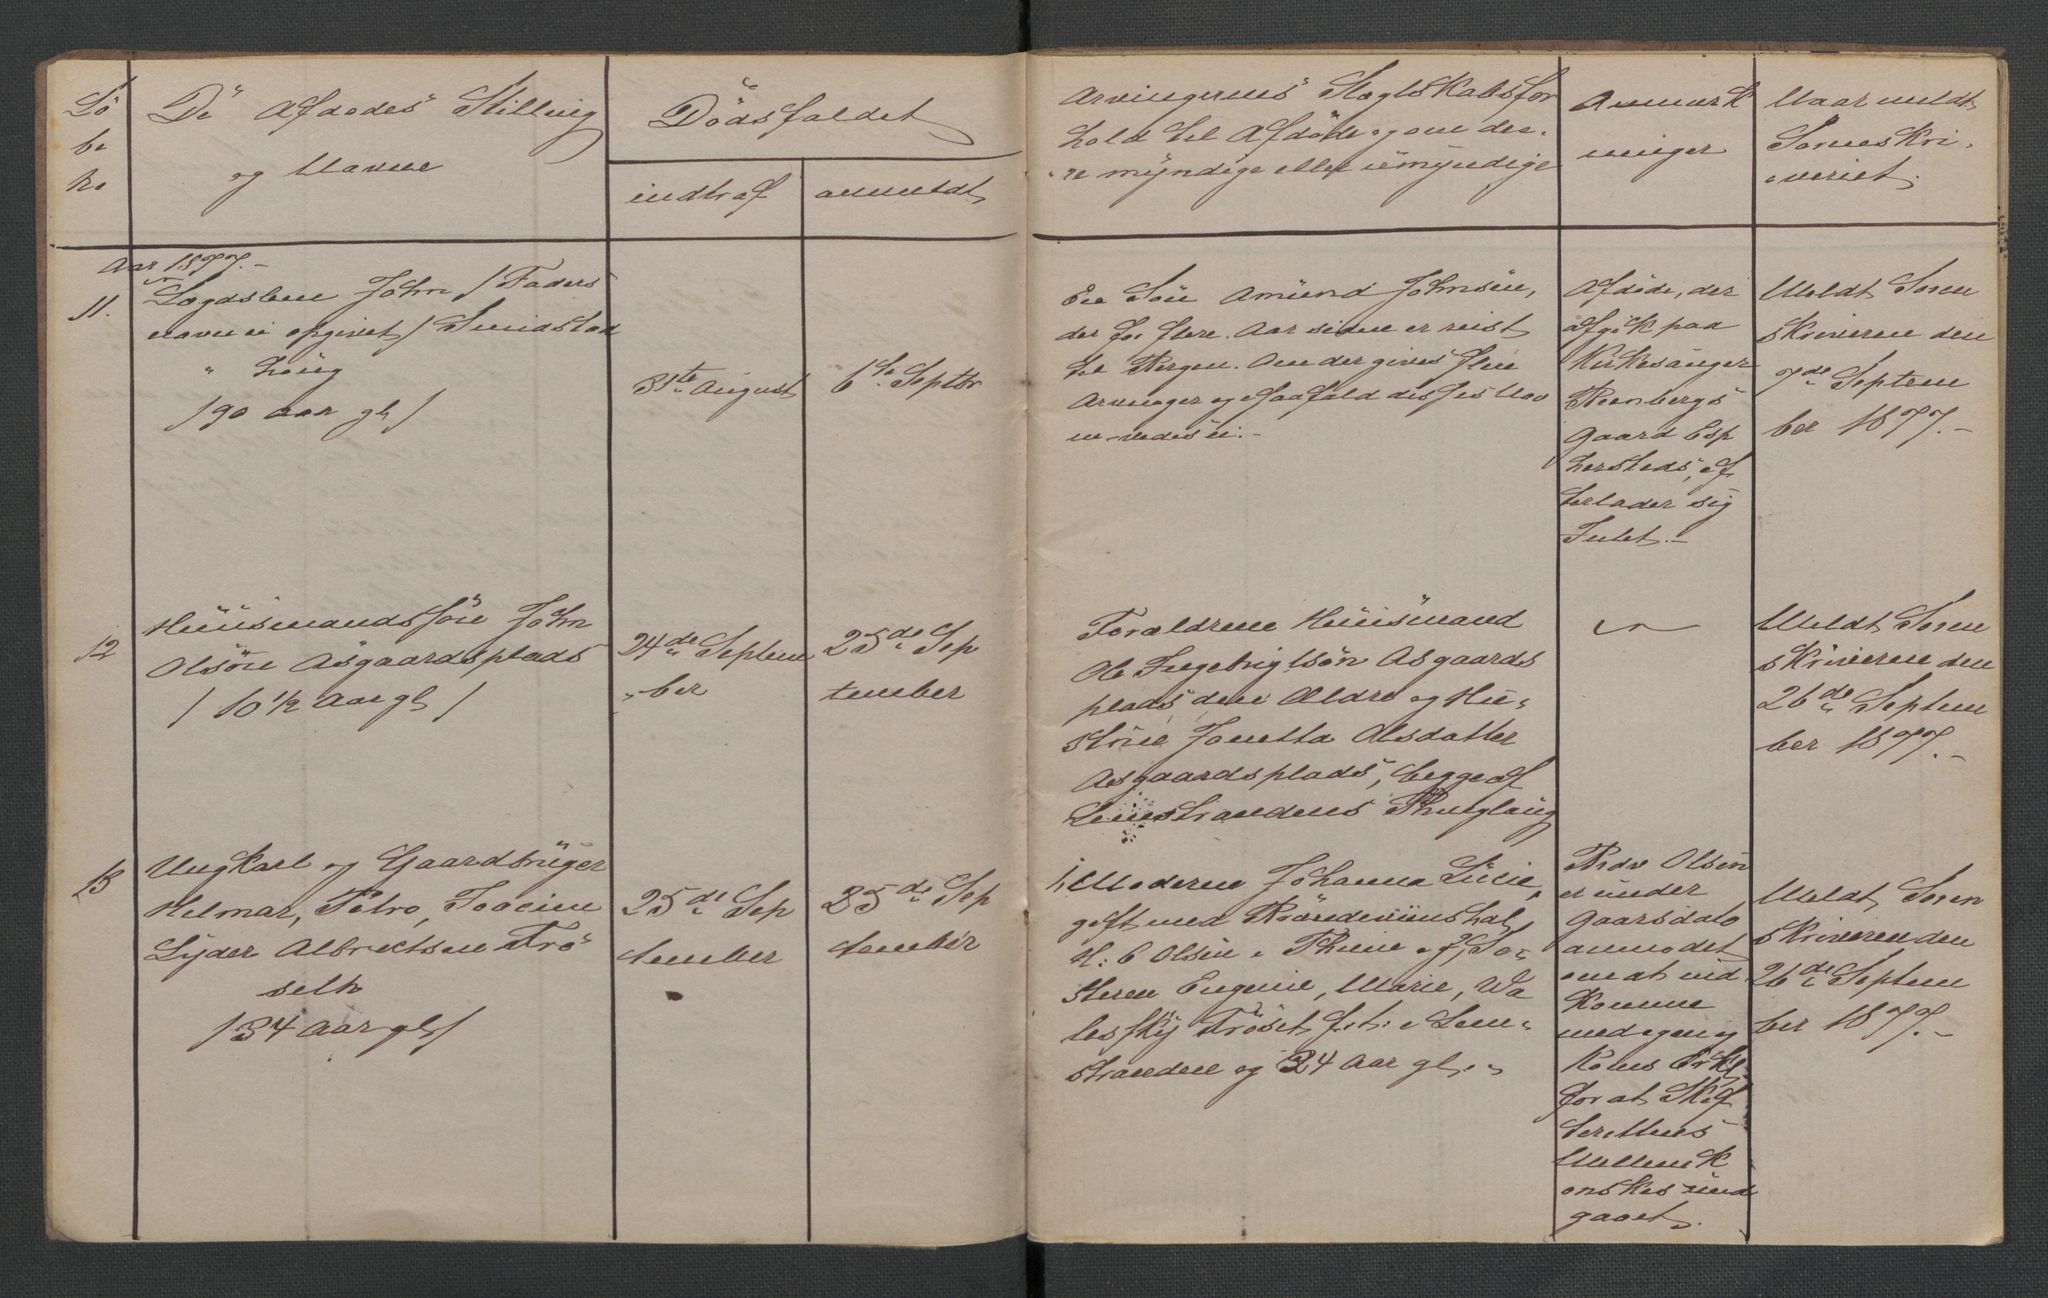 Lö
be
No
De Afdødes Stilling
og Navne
Dödsfaldet
indtraf
anmeldt
Arvingernes Slægtskabsfor
hold til Afdöde og om de e-
re myndige eller umyndige
Anmærk
ninger
Naar meldt
Sorenskri-
veriet.
Aar 1877.-
11.
Lægdslem John / Faders
navn ei opgivet / Smidstad
Löng
/ 90 Aar gl /
31te August
6te Septbr
En Sön Amund Johnsen,
der for flere Aar siden er reist
til Bergen. Om der gives flere
Arvinger og i saafald disses Nav
ne vedes ei.-
Afdöde, der
afgik paa
Kirkesanger
Steenbergs
Gaard Esp
hersteds, ef
terlader sig
Intet.-
Meldt Soren
skriveren den
7de Septem
ber 1877.-
12
Huusmandssön John
Olsön Aasgaardsplads
/ 10 1/2 Aar gl /
24de Septem
ber
25de Sep
tember
Forældrene Huusmand
Ole Ingebrigtsön Asgaards
plads den Ældre og Hu-
strue Jonetta Olsdatter
Asgaardsplads, begge af
Lenestrandens Thinglaug
Meldt Soren
skriveren den
26de Septem
ber 1877.-
13
Ungkarl og Gaardbruger
Helmar, Petro, Joacim
Lyder Albrectsen Trö
seth
/ 34 Aar gl /
25de Sep
tember
25de Sep
tember
1, Moderen Johanna Lucie,
gift med
H: C Olsen i og 2, Sö-
steren Eugenie, Marie, Wa
lesky Tröset f.t. i Len-
stranden og 34 Aar gl.
Olsen
er under
Gaarsdato
anmodet
om at ind
komme
med egen og
Kones Erkl
for at Skif
terettens
Mellemk
onskes und
gaaet.
Meldt Soren
skriveren den
26de Septem
ber 1877.-